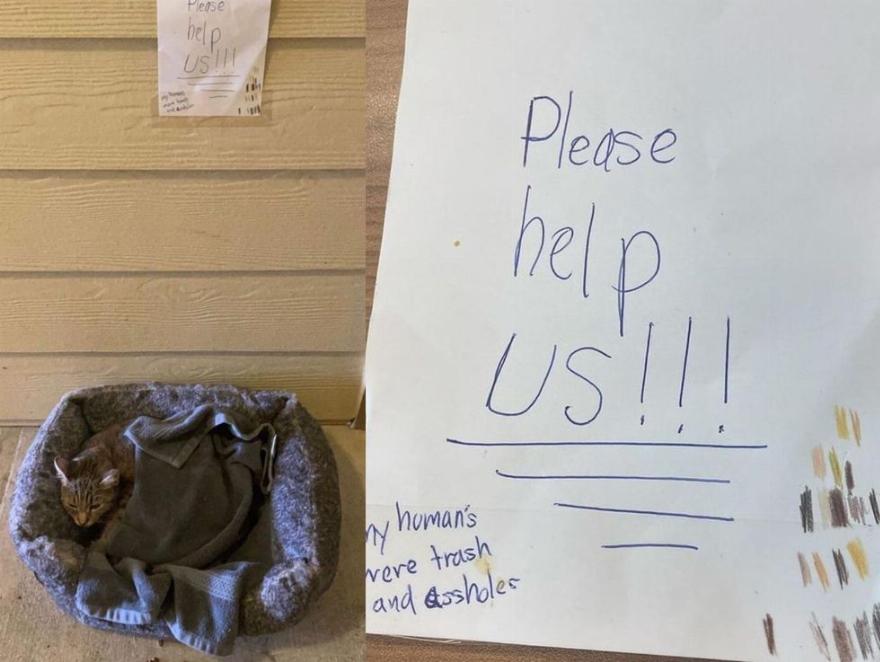 Please
help
us!!!
my human's
were trash
and assholes
Please
help
US!!!
my human's
were trash
and assholes